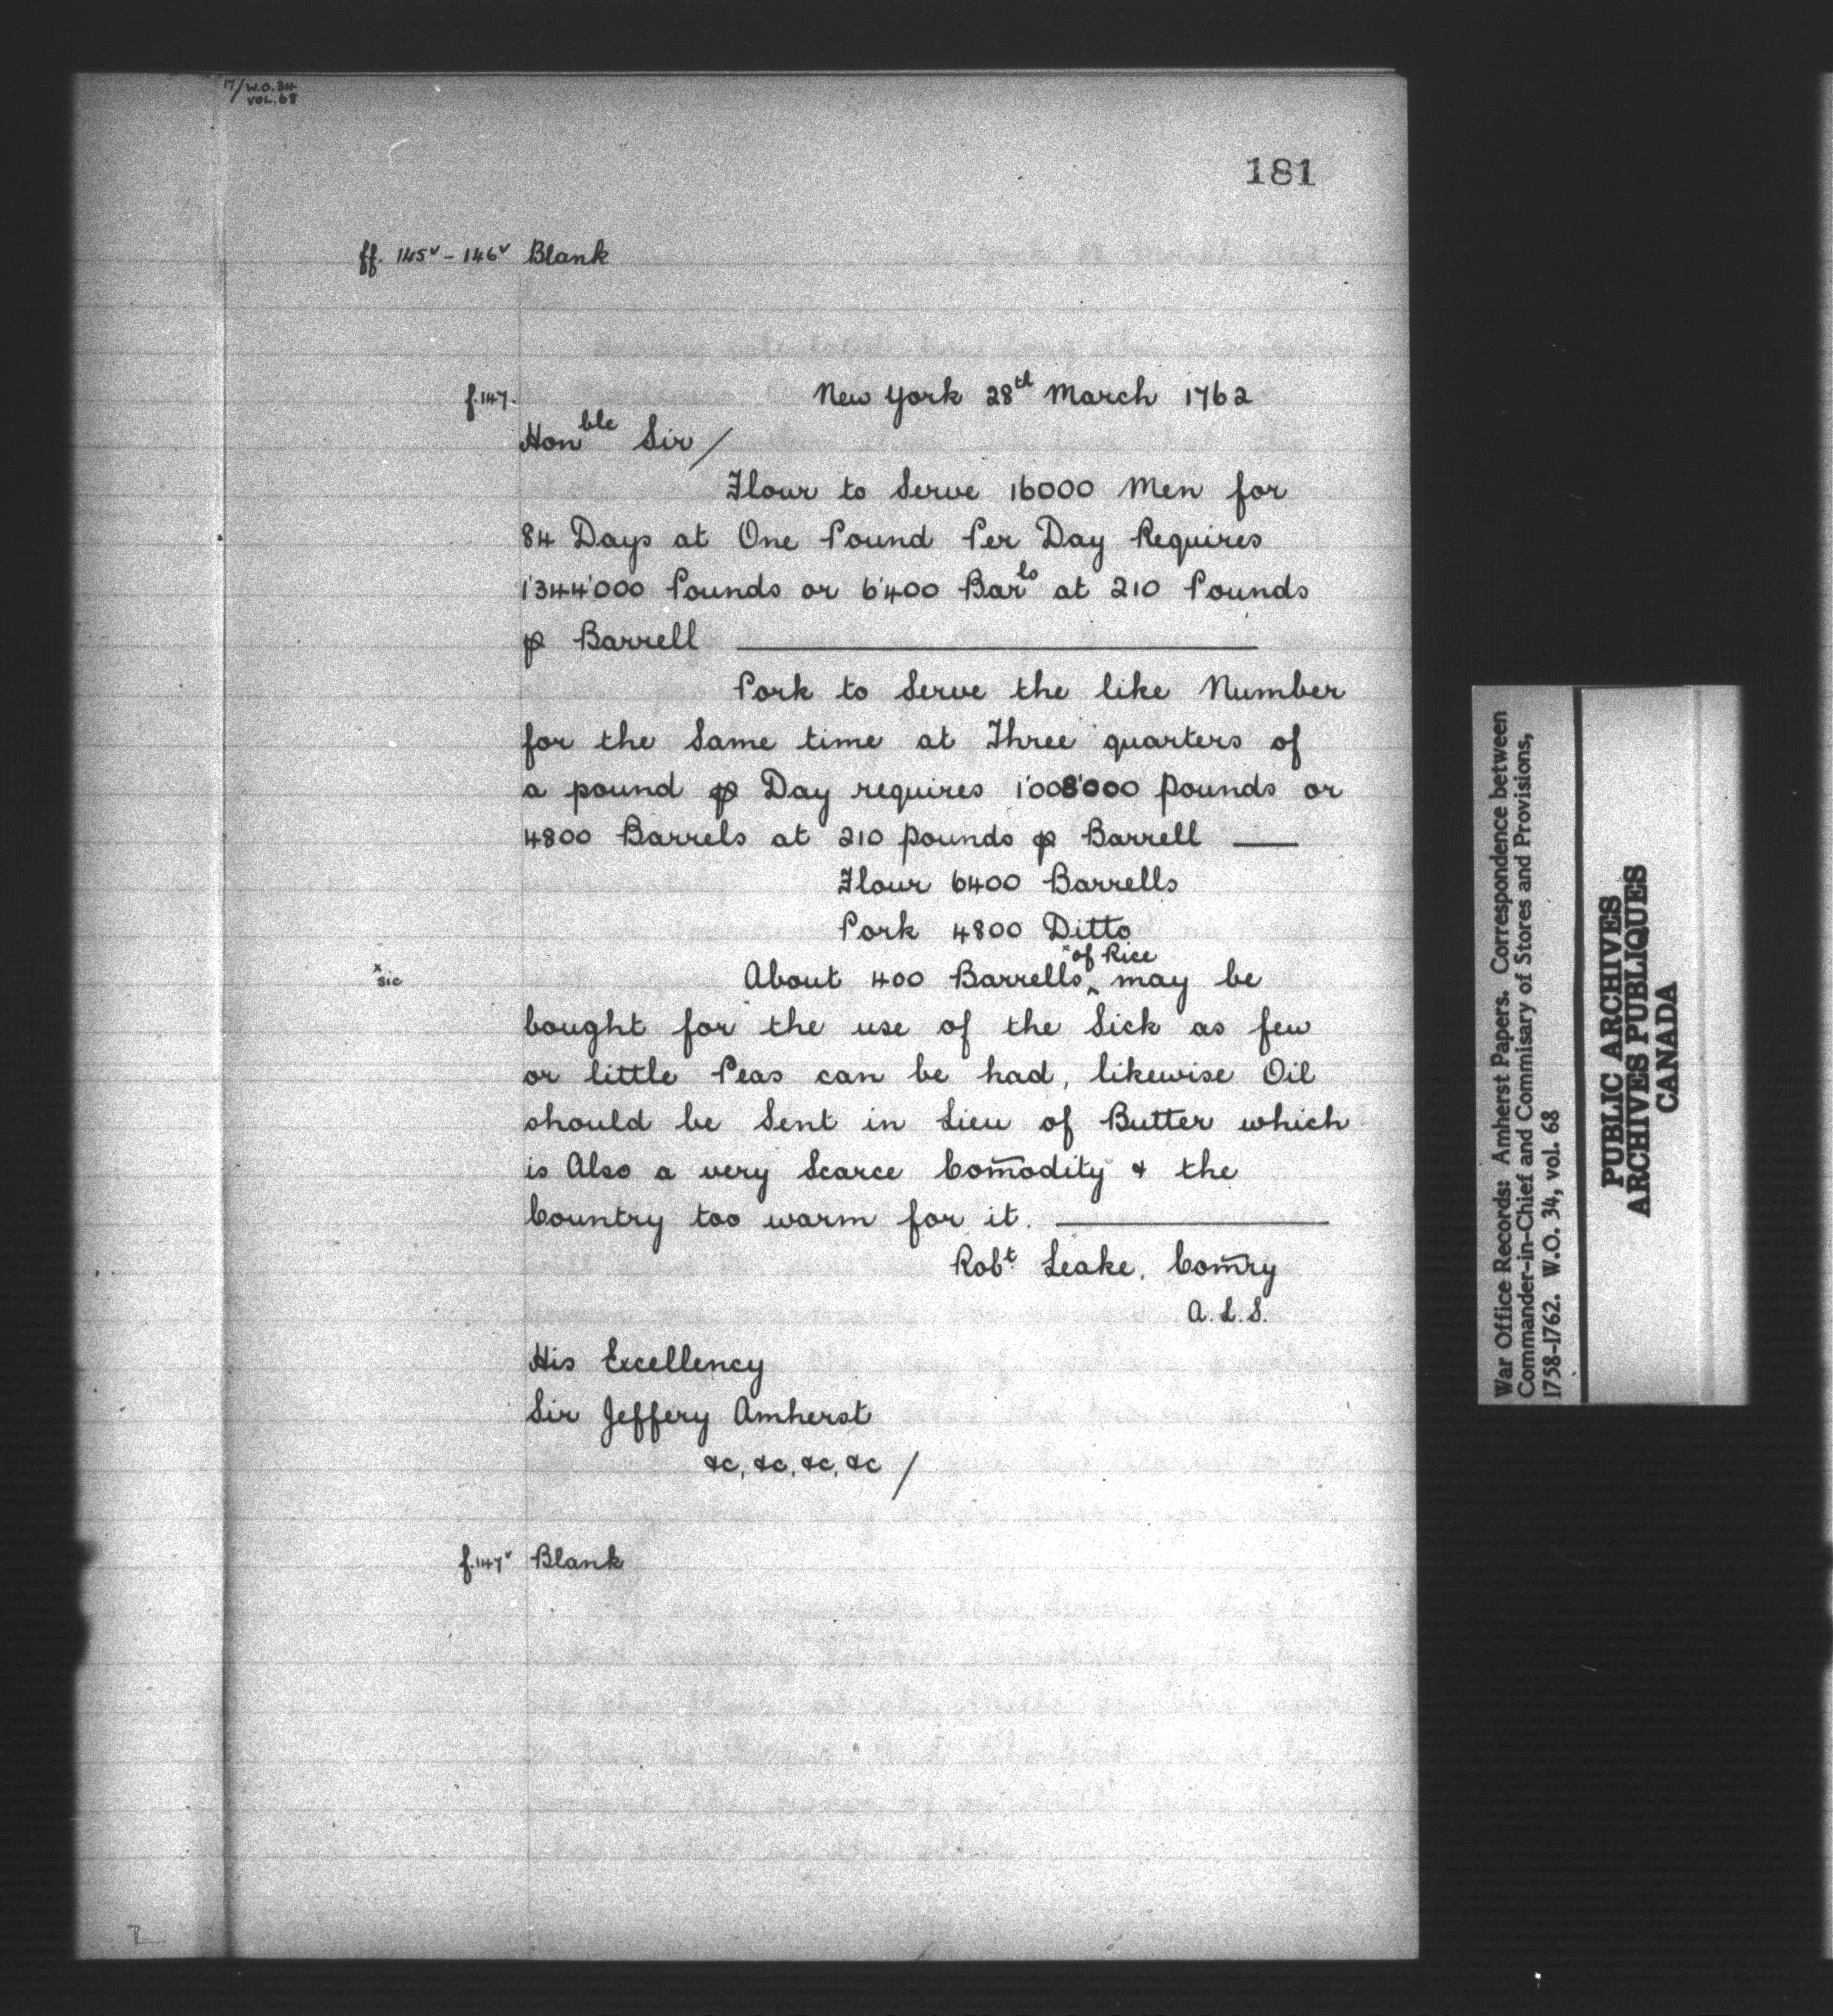 17/W.O.34
VOL.68
181
ff. 145v - 146v Blank
f.147. New York 28th March 1762
Honble Sir/
Flour to Serve 16000 Men for
84 Days at One Pound Per Day Requires
1'344'000 Pounds or 6'400 Barls at 210 Pounds
⅌ Barrell
Pork to Serve the like Number
for the Same time at Three quarters of
a pound ⅌ Day requires 1'008'000 pounds or
4800 Barrels at 210 pounds ⅌ Barrell
Flour 6400 Barrells
Pork 4800 Ditto
x of Rice
x sic About 400 Barrells ^ may be
bought for the use of the Sick as few
or little Peas can be had, likewise Oil
should be Sent in Lieu of Butter which
is Also a very Scarce Com̄odity & the
Country too warm for it.
Robt. Leake, Com̄ry
A.L.S.
His Excellency
Sir Jeffery Amherst
&c, &c, &c, &c /
f.147v Blank
War Office Records: Amherst Papers. Correspondence between
Commander-in-Chief and Commisary of Stores and Provisions,
1758-1762. W.O. 34, vol. 68
PUBLIC ARCHIVES
ARCHIVES PUBLIQUES
CANADA